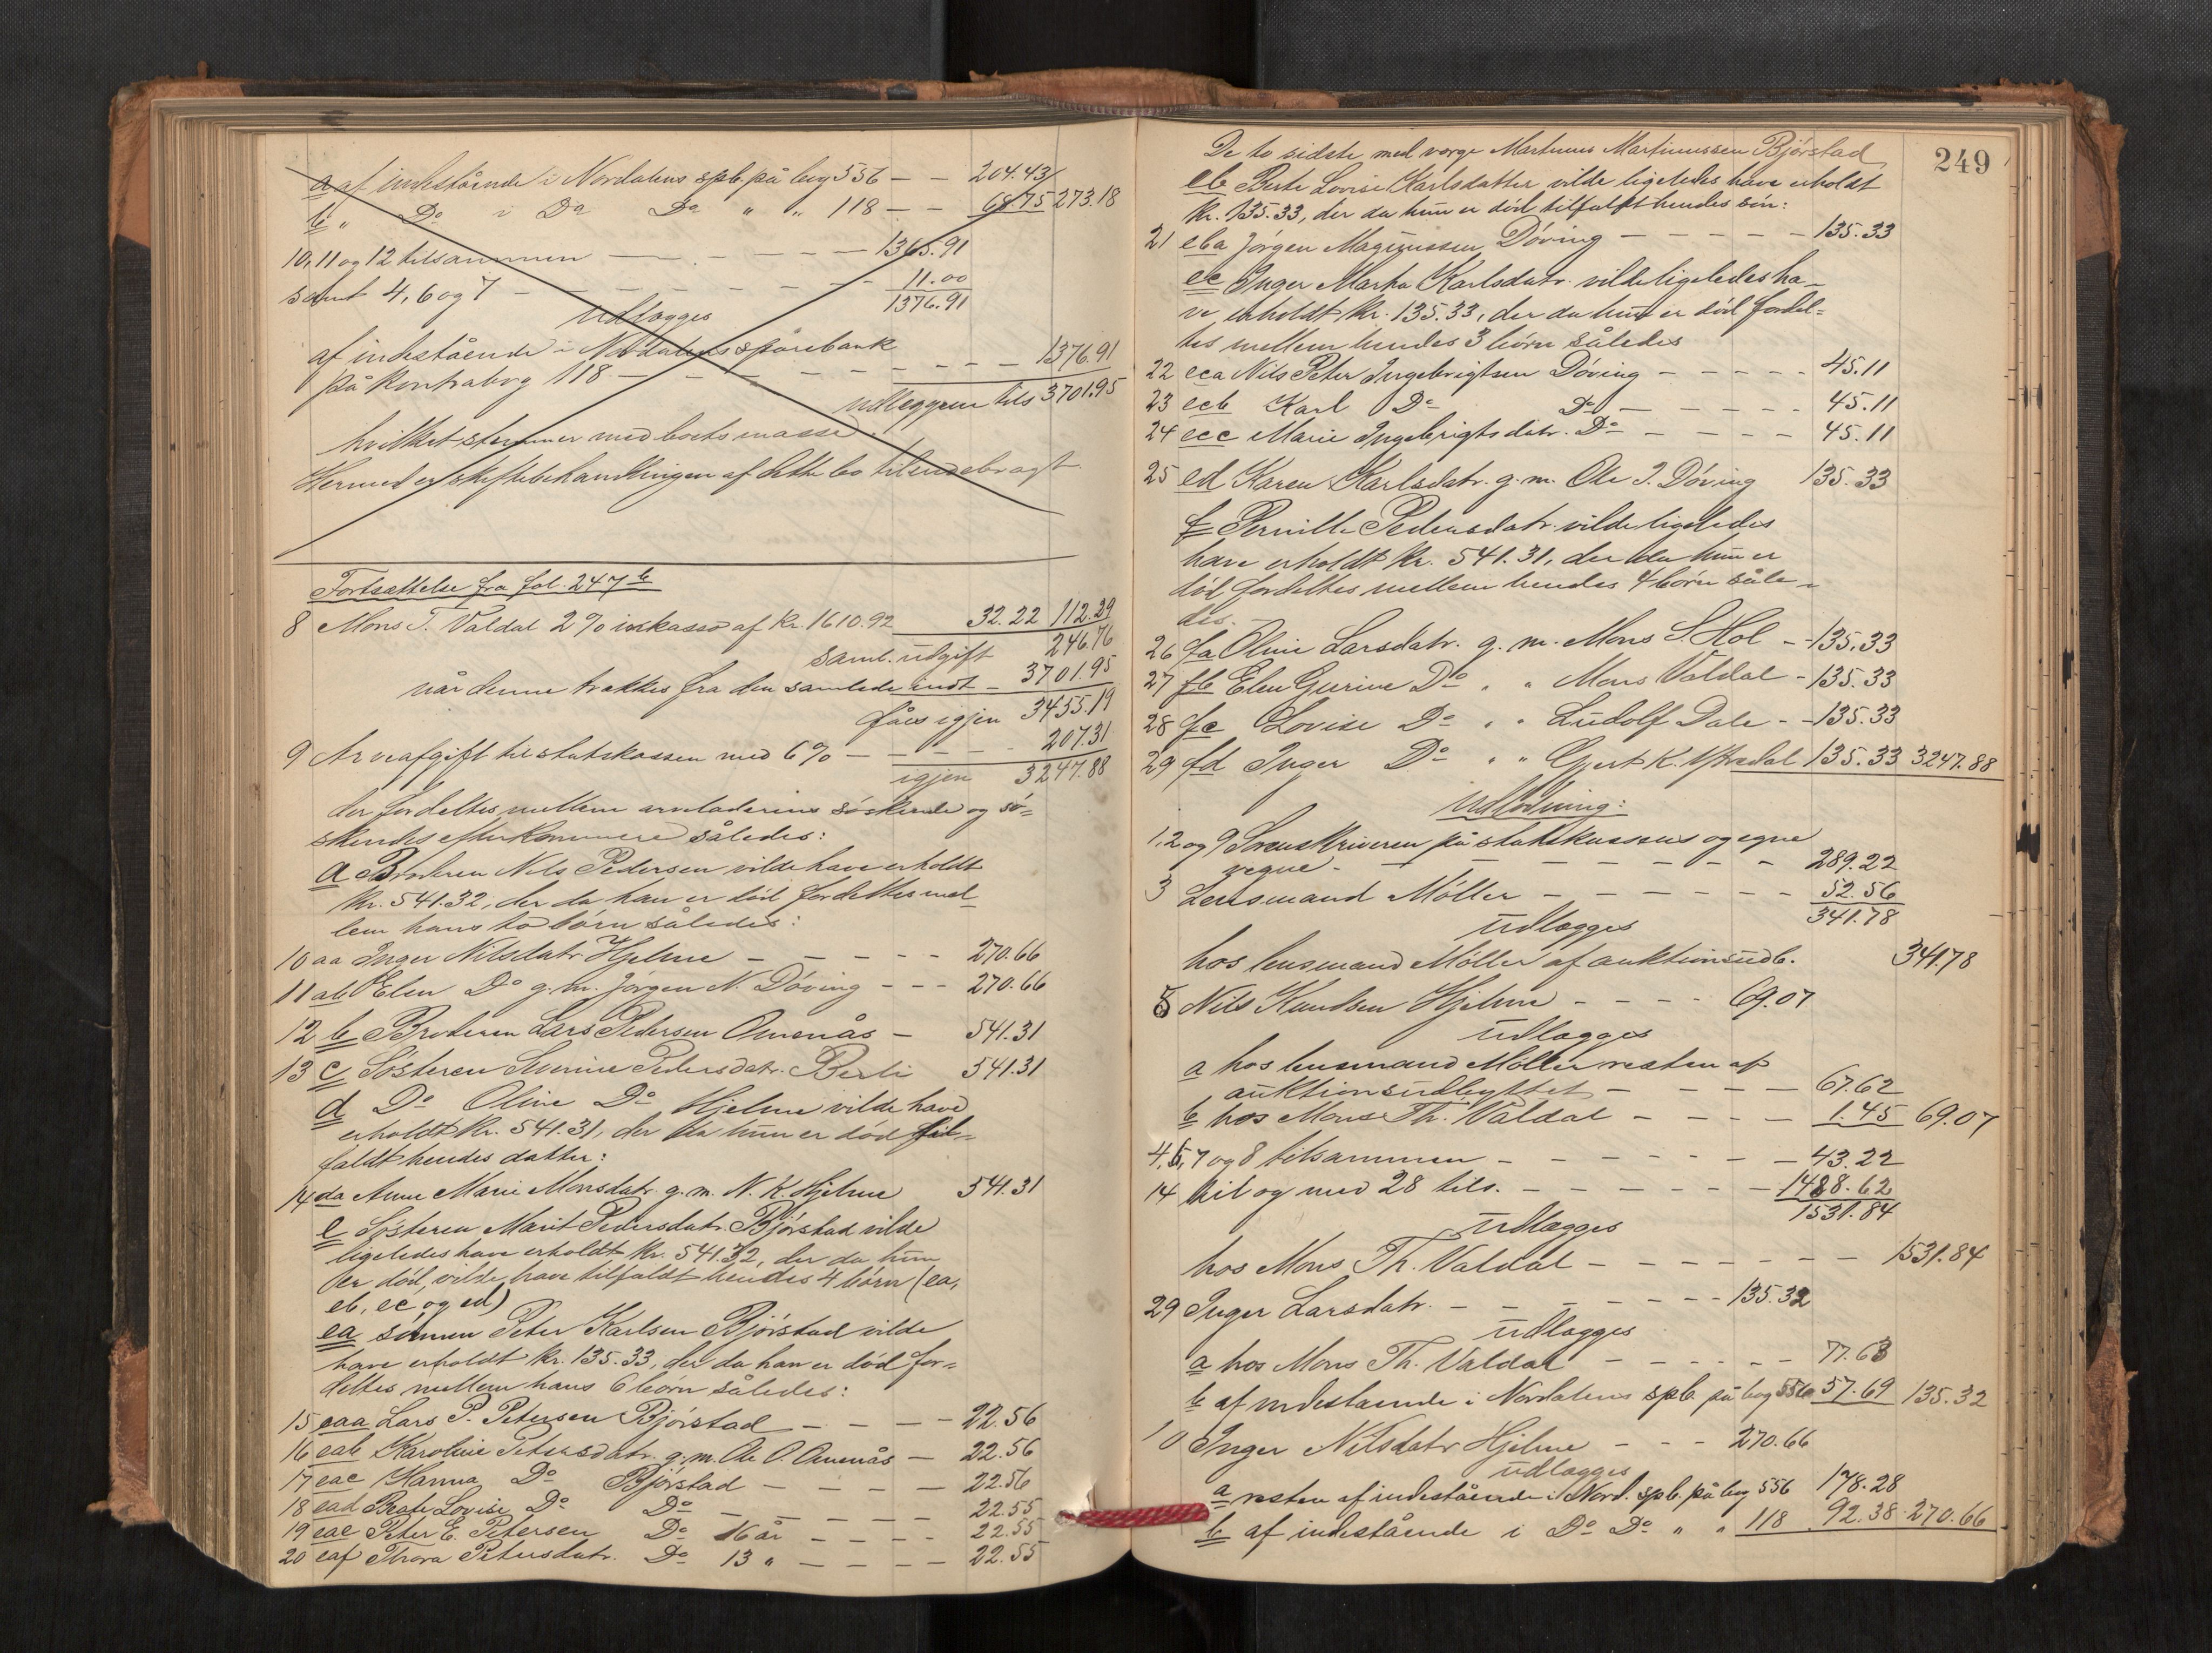 a af indestående i Nordalens spb. på bog 556 — — 204.43
b " Do i Do Do " " 118 — — 68.75 273.18
10, 11 og 12 tilsammen — — — — — 1365.91
samt 4, 6 og 7 — — — — — — 11.00
1376.91
udlægges
af indestående i Nordalens sparebank
på kontrabog 118 — — — — — — — 1376.91
udlæggene tils 3701.95
hvilket stemmer med boets masse.
Hermed er skiftebehandlingen af dette bo tilendebragt.
Fortsættelse fra fol. 247 b
8 Mons T. Valdal 2 % inkasso af kr. 1610.92 32.22 112.29
saml. udgift 246.76
når denne trækkes fra den samlede indt — 3701.95
fåes igjen 3455.19
9 Arveafgift til statskassen med 6 % — — — — 207.31
igjen 3247.88
der fordeltes mellem arveladerins söskende og sö-
skendes efterkommere således:
a Broderen Nils Pedersen vilde have erholdt
kr. 541.32, der da han er död fordeltes mel-
lem hans to börn således:
10 aa Inger Nilsdatr Hjelme — — — — — 270.66
11 ab Elen Do g. m. Jörgen N. Döving — — — 270.66
12 b Broderen Lars Pedersen Omenås — 541.31
13 c Sösteren Severine Pedersdatr. Berli 541.31
d Do Oline Do Hjelme vilde have
erholdt kr. 541.31, der da hun er död til-
faldt hendes datter:
14 da Anne Marie Monsdatr. g. m. N. K. Hjelme 541.31
e Sösteren Marit Pedersdatr. Bjørstad vilde
ligeledes have erholdt kr. 541.32, der da hun
er död, vilde have tilfaldt hendes 4 börn (ea,
eb, ec og ed)
ea sönnen Peter Karlsen Bjørstad vilde
have erholdt kr. 135.33, der da han er död for-
deltes mellem hans 6 börn således:
15 eaa Lars P. Petersen Bjørstad — — — — 22.56
16 eab Karoline Petersdatr. g. m. Ole O. Omenås — 22.56
17 eac Hanna Do Bjørstad — — — — 22.56
18 ead Beate Lovise Do Do — — — — — 22.55
19 eae Peter E. Petersen Do 16 år — — — — 22.55
20 eaf Thora Petersdatr. Do 13 " — — — — 22.55
249
De to sidste med værge Martinus Martinussen Bjørstad
eb Berte Lovise Karlsdatter vilde ligeledes have erholdt
kr. 135.33, der da hun er död tilfaldt hendes sön:
21 eba Jörgen Magnussen Döving — — — — — 135.33
ec Inger Marta Karlsdatr. vilde ligeledes ha-
ve erholdt kr. 135.33, der da hun er död fordel-
tes mellem hendes 3 börn således
22 eca Nils Peter Ingebrigtsen Döving — — — — — 45.11
23 ecb Karl Do Do — — — — — 45.11
24 ecc Marie Ingebrigtsdatr. Do — — — — — 45.11
25 ed Karen Karlsdatr. g. m. Ole J. Döving 135.33
f Pernille Pedersdatr. vilde ligeledes
have erholdt kr. 541.31, der da hun er
död fordeltes mellem hendes 4 börn såle-
des.
26 fa Oline Larsdatr. g. m. Mons S. Hol — — 135.33
27 fb Elen Gurine Do " " Mons Valdal — 135.33
28 fc Lovise Do " " Ludolf Dale — — 135.33
29 fd Inger Do " " Gjert K. Ytredal 135.33 3247.88
Udlodning:
1, 2 og 9 Sorenskriveren på statskassens og egne
vegne — — — — — — — — 289.22
3 Lensmand Möller — — — — — — — 52.56
341.78
udlægges
hos lensmand Möller af auktionsudb. 341.78
5 Nils Knudsen Hjelme — — — — 69.07
udlægges
a hos lensmand Möller resten af
auktionsudbyttet — — — — — 67.62
b hos Mons Th. Valdal — — — — 1.45 69.07
4, 6, 7 og 8 tilsammen — — — — — — 43.22
14 til og med 28 tils. — — — — — — 1488.62
1531.84
udlægges
hos Mons Th. Valdal — — — — — — — 1531.84
29 Inger Larsdatr. — — — — — — — 135.32
udlægges
a hos Mons Th. Valdal — — — — — 77.63
b af indestaaende i Nordalens spb. på bog 556 57.69 135.32
10 Inger Nilsdatr Hjelme — — — 270.66
udlægges
a resten af indestående i Nord. spb. på bog 556 178.28
b af indestående i Do Do " " 118 92.38 270.66